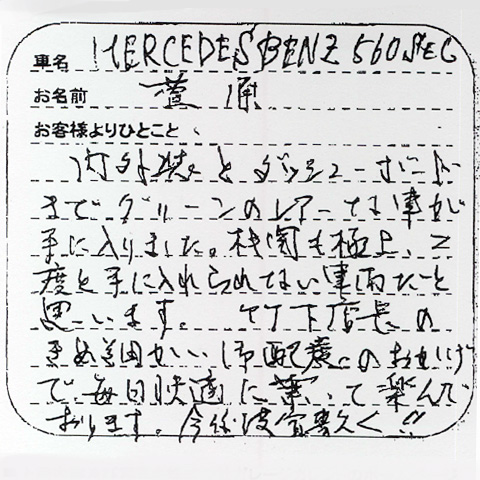 車名 MERCEDES BENZ 560SEC
お名前 萱原
お客様よりひとこと
内外装とダッシュボード
までグリーンのレアーな車が
手に入りました。機関も極上、二
度と手に入れられない車両だと
思います。竹下店長の
きめ細かいご配慮のおかげ
で毎日快適に乗って楽んで
おります。今後共宜敷久く!!